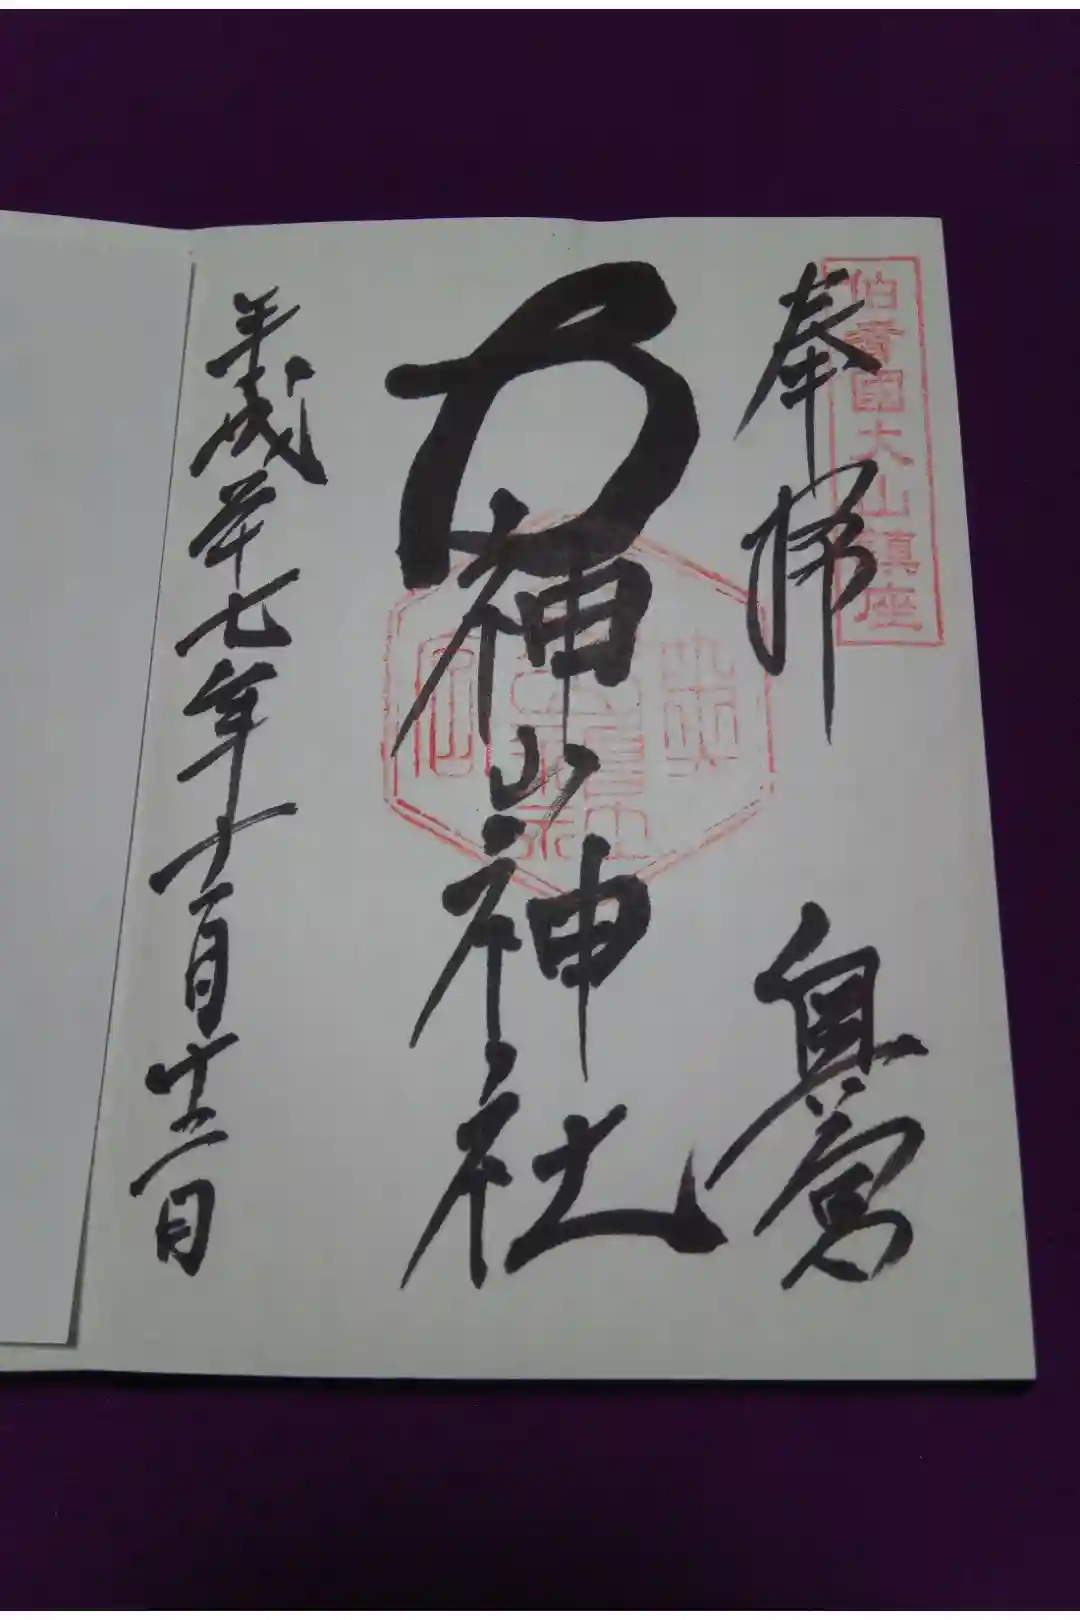 伯耆國大山鎮座
奉拝 奥宮
大神山神社
平成廿七年十一月